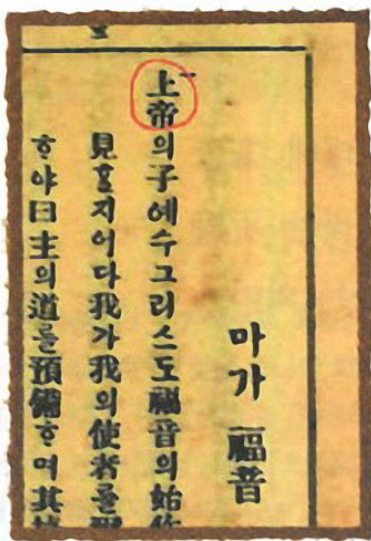 마가 福音
一 上帝의子예수그리스도福音의始
見ᄒᆞᆯ지어다我가我의使者를
ᄒᆞ야曰主의道를預備ᄒᆞ며其